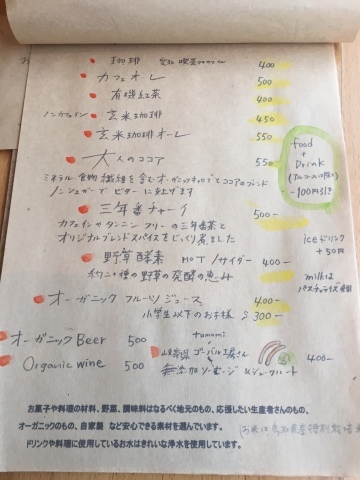 珈琲 400
カフェオレ 500
有機紅茶 400
ノンカフェイン 玄米珈琲 450
玄米珈琲オーレ 550
大人のココア 550
ミネラル 食物繊維を含むオーガニックキャロブとココアのブレンド
ノンシュガーでビターに仕上げます
food
+
Drink
(アルコールは除く)
-100円引き
三年番チャーイ 500-
カフェインやタンニンフリーの三年番茶と
オリジナルブレンドスパイスをじっくり煮ました
iceドリンク
+50円
野草酵素 HOT/サイダー 400-
約二十種の野草の発酵の恵み
milkは
パスチャライズ使用
オーガニック フルーツジュース 400-
小学生以下のお子様 300-
オーガニックBeer 500
Organic wine 500
+tumami
ゴーバル工房さん
無添加ソーセージ &ジャークルート 400-
お菓子や料理の材料、野菜、調味料はなるべく地元のもの、応援したい生産者さんのもの、
オーガニックのもの、自家製 など安心できる素材を選んでいます。
ドリンクや料理に使用しているお水はきれいな浄水を使用しています。